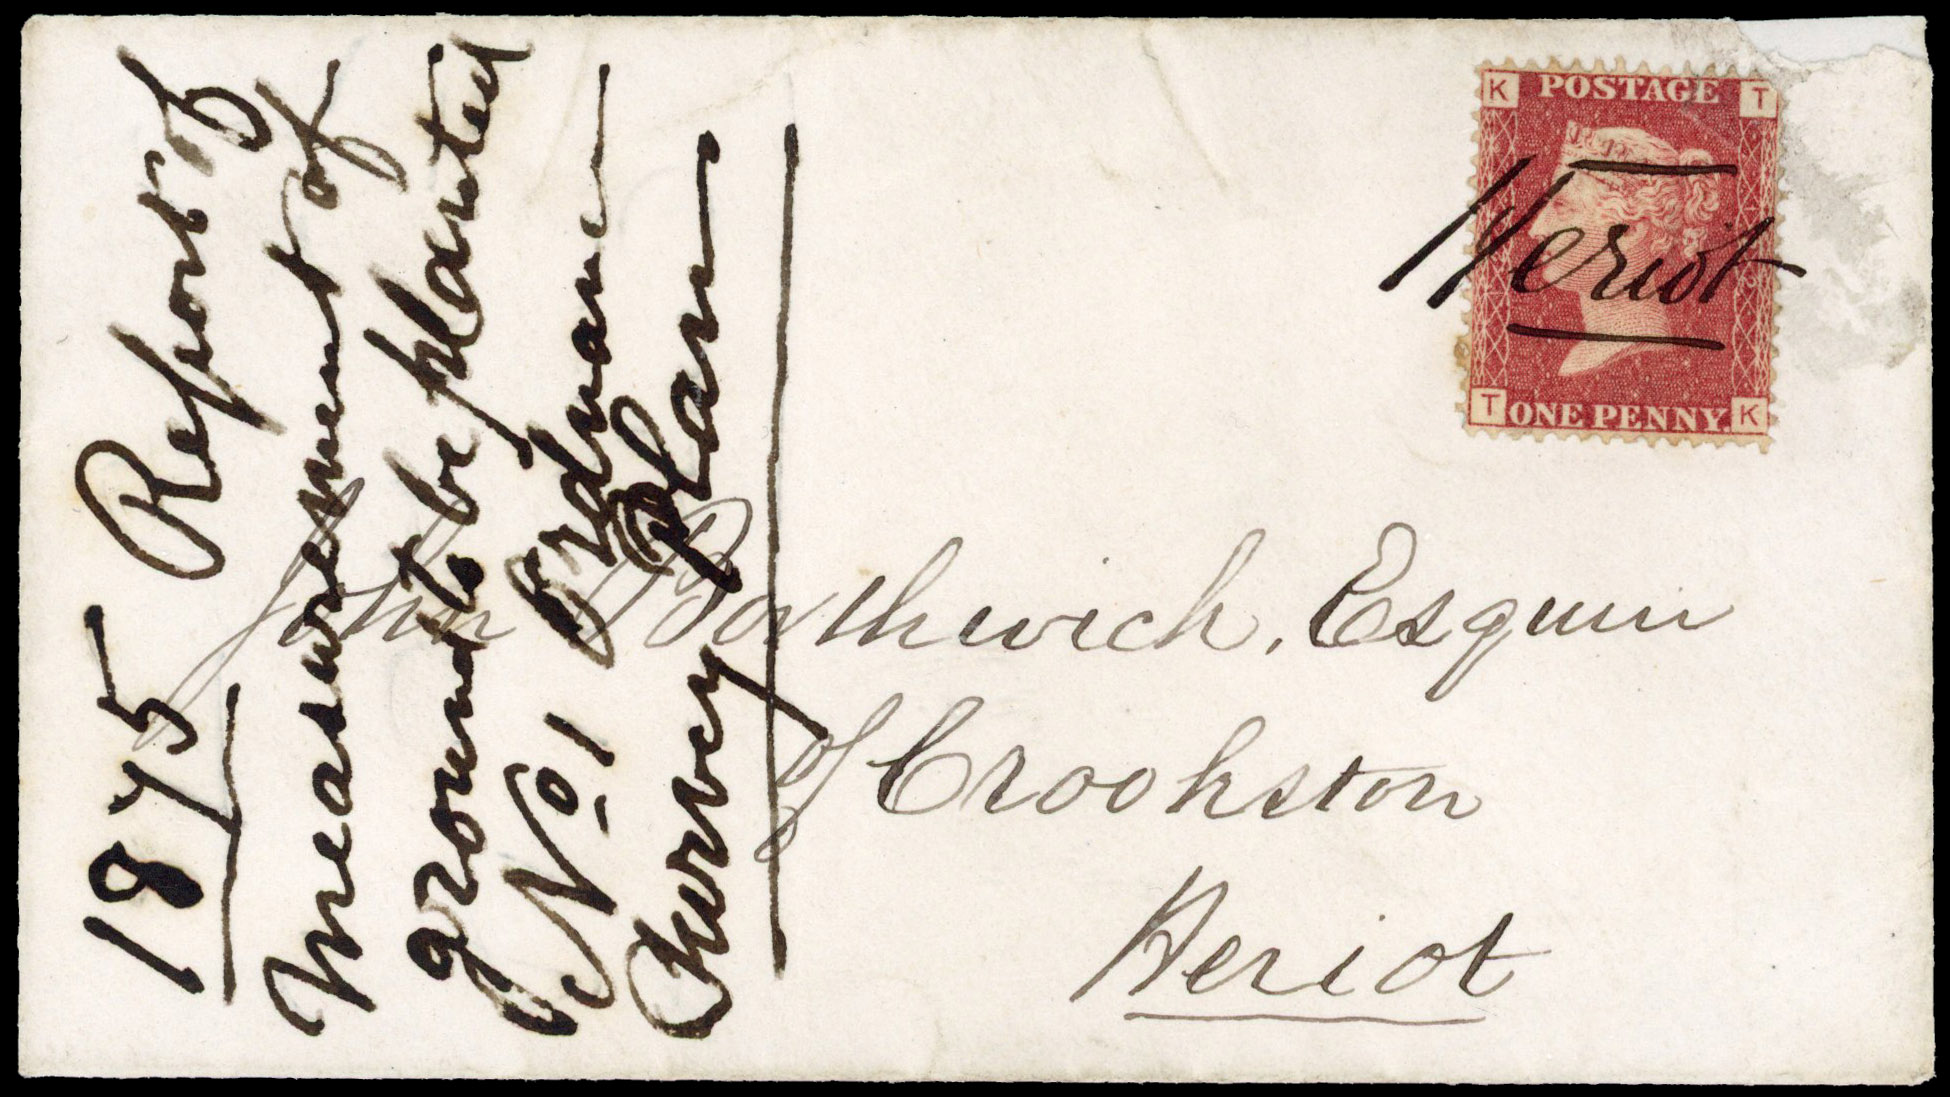 1875 Report of
measurement of
ground to be planted
No. 1 Ordnance
Survey plan
K POSTAGE T
Heriot
T ONE PENNY K
John Borthwick, Esquire
of Crookston
Heriot